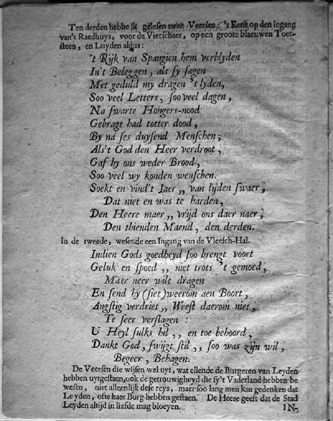 Ten derden hebbe ik gelesen twee Veersen, 't Eene op den Ingang
van's Raedhuys, voor de Vierschaer, op een groote blaeuwen Toet-
steen, en Luyden aldus:
't Rijk van Spangien hem verblyden
In't Beleggen, als sy sagen
Met geduld my dragen 't lyden,
Soo veel Letters, soo veel dagen,
Na swarte Hongers-nood
Gebragt had totter dood,
By na ses duysend Menschen;
Als't God den Heer verdroot,
Gaf hy ons weder Brood,
Soo veel wy konden wenschen.
Soekt en vind't Jaer „ van lyden swaer,
Dat niet en was te harden,
Den Heere maer „ vrijd ons daer naer,
Den thienden Maend, den derden.
In de tweede, wesende een Ingang van de Vleesch-Hal.
Indien Gods goedheyd soo brengt voort
Geluk en spoed „ niet trots 't gemoed,
Maer neer wilt dragen
En send hy (siet) weerom aen Boort,
Angstig verdriet „ Weest daerom niet,
Te seer verslagen:
U Heyl sulks hil „, en toe behoord,
Dankt God, swijgt stil „, soo was zijn wil,
Begeer, Behagen.
De Veersen die wijsen wel uyt, wat ellende de Burgeren van Leyden
hebben uytgestaen, ook de getrouwigheyd die sy't Vaderland hebben be-
wesen, niet alleenlijk dese reys, maer soo lang men kan gedenken dat
Leyden, ofte haer Burg hebben gestaen. De Heere geeft dat de Stad
Leyden altijd in liefde mag bloeyen.
IN-